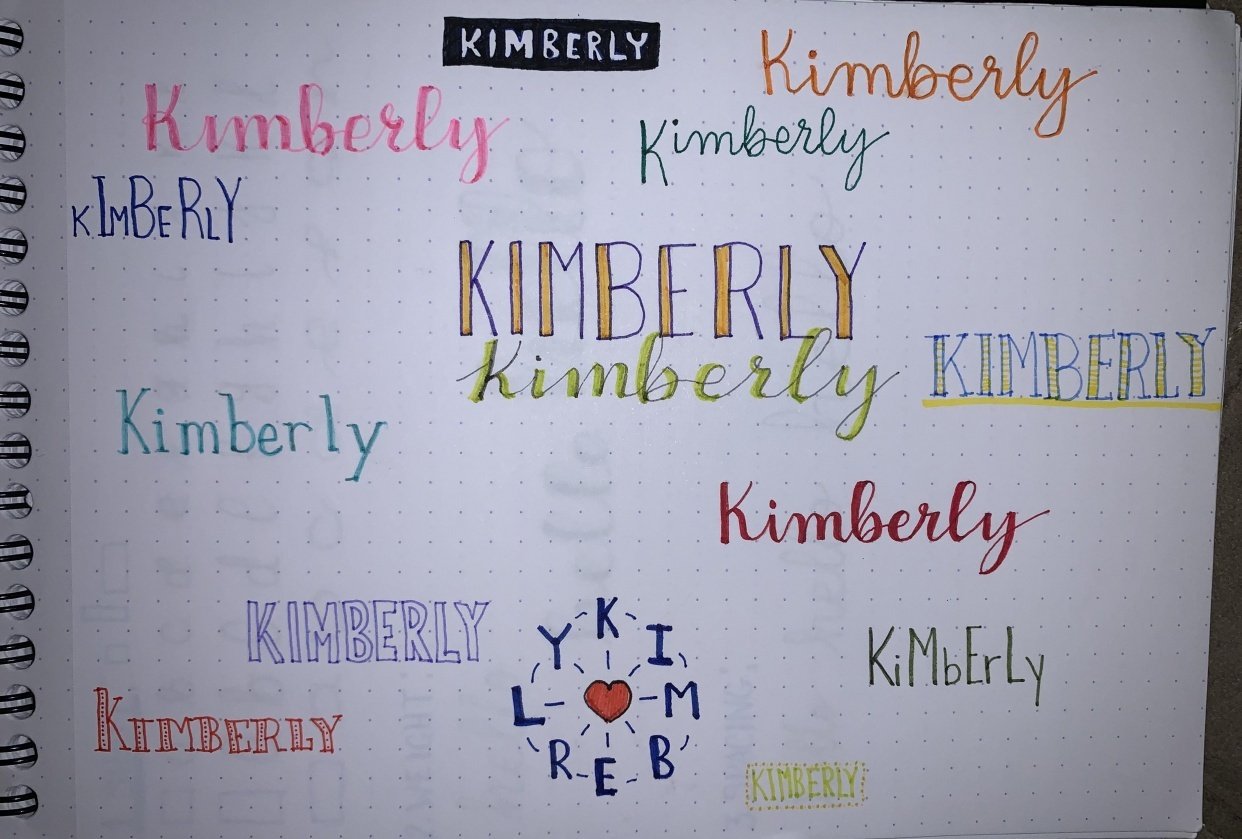 KIMBERLY
Kimberly
Kimberly
Kimberly
KIMBERLY
KIMBERLY
Kimberly
KIMBERLY
Kimberly
Kimberly
KIMBERLY
KIMBERLY
KiMbErLy
KIMBERLY
KIMBERLY